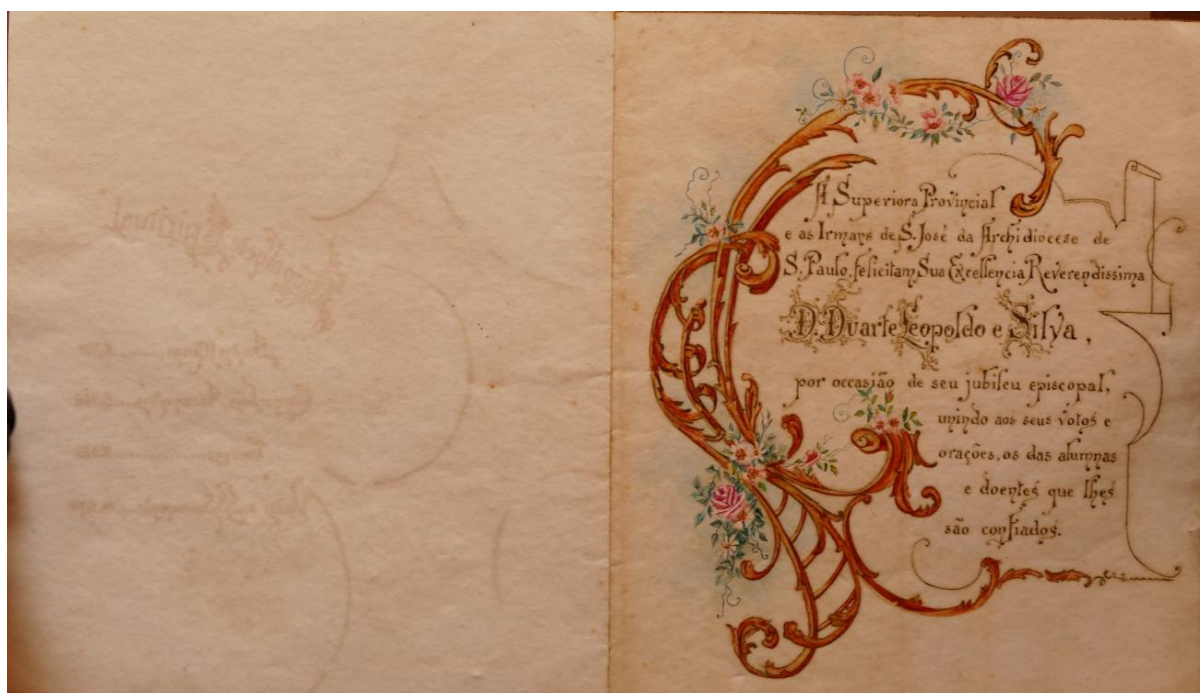 A Superiora Provincial
e as Irmans de S. José da Archidiocese de
S. Paulo, felicitam Sua Excellencia Reverendissima
D. Duarte Leopoldo e Silva,
por occasião de seu jubileu episcopal,
unindo aos seus votos e
orações, os das alumnas
e doentes que lhes
são confiados.